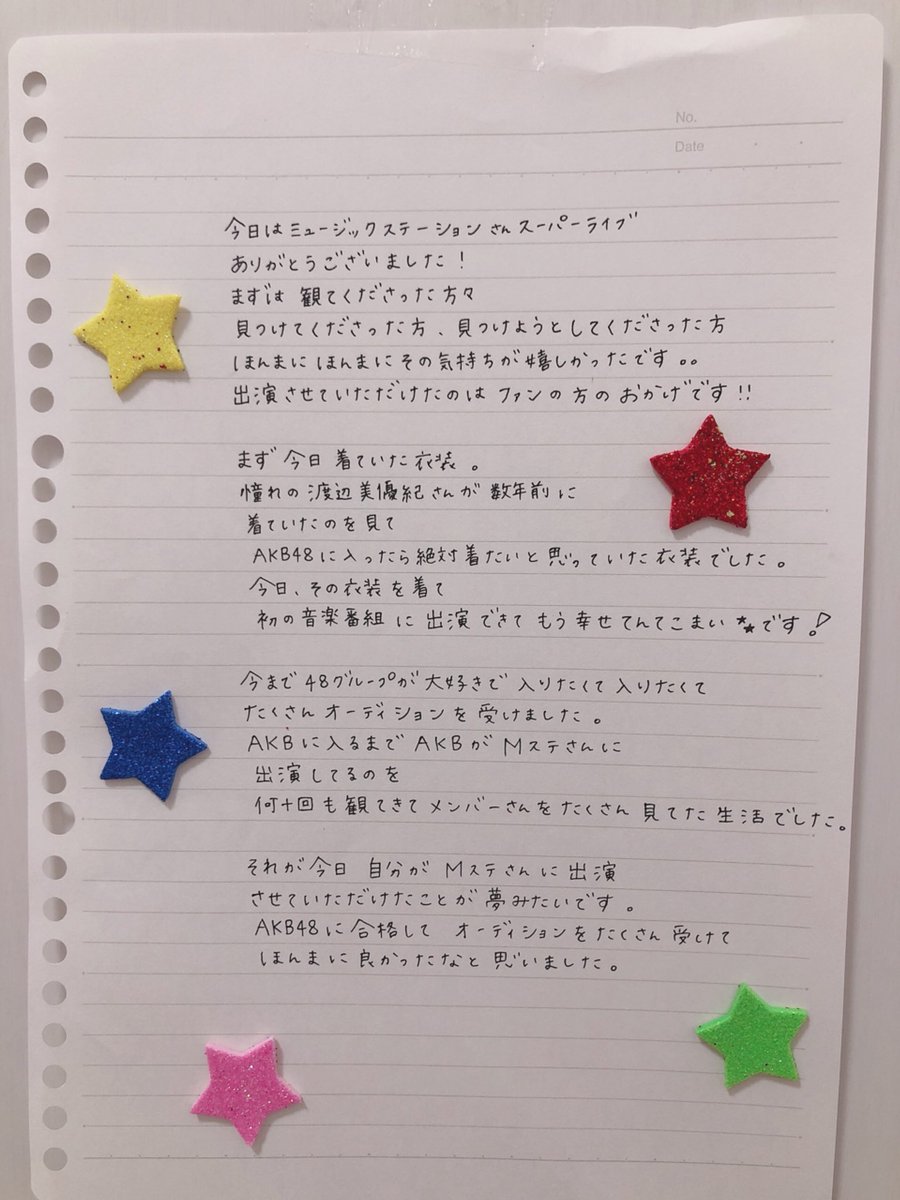 No.
Date
今日はミュージックステーションさんスーパーライブ
ありがとうございました！
まずは 観てくださった方々
見つけてくださった方、見つけようとしてくださった方
ほんまにほんまにその気持ちが嬉しかったです。。
出演させていただけたのは ファンの方のおかげです!!
まず 今日 着ていた衣装。
憧れの渡辺美優紀さんが数年前に
着ていたのを見て
AKB48に入ったら絶対着たいと思っていた衣装でした。
今日、その衣装を着て
初の音楽番組に出演できてもう幸せてんてこまい★★です!
今まで48グループが大好きで入りたくて入りたくて
たくさんオーディションを受けました。
AKBに入るまでAKBがMステさんに
出演してるのを
何十回も観てきてメンバーさんをたくさん見てた生活でした。
それが今日 自分がMステさんに出演
させていただけたことが夢みたいです。
AKB48に合格して オーディションをたくさん受けて
ほんまに良かったなと思いました。